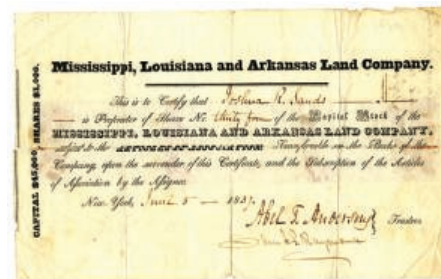 CAPITAL $45,000, SHARES $1,000.
Mississippi, Louisiana and Arkansas Land Company.
This is to Certify that Joshua R. Sands
is Proprietor of Share No. thirty four of the Capital Stock of the
MISSISSIPPI, LOUISIANA AND ARKANSAS LAND COMPANY,
subject to the ARTICLES OF ASSOCIATION Transferable on the Books of the
Company, upon the surrender of this Certificate, and the Subscription of the Articles
of Association by the Assignee.
New York, June 5 1837.
Abel T. Anderson
Trustees